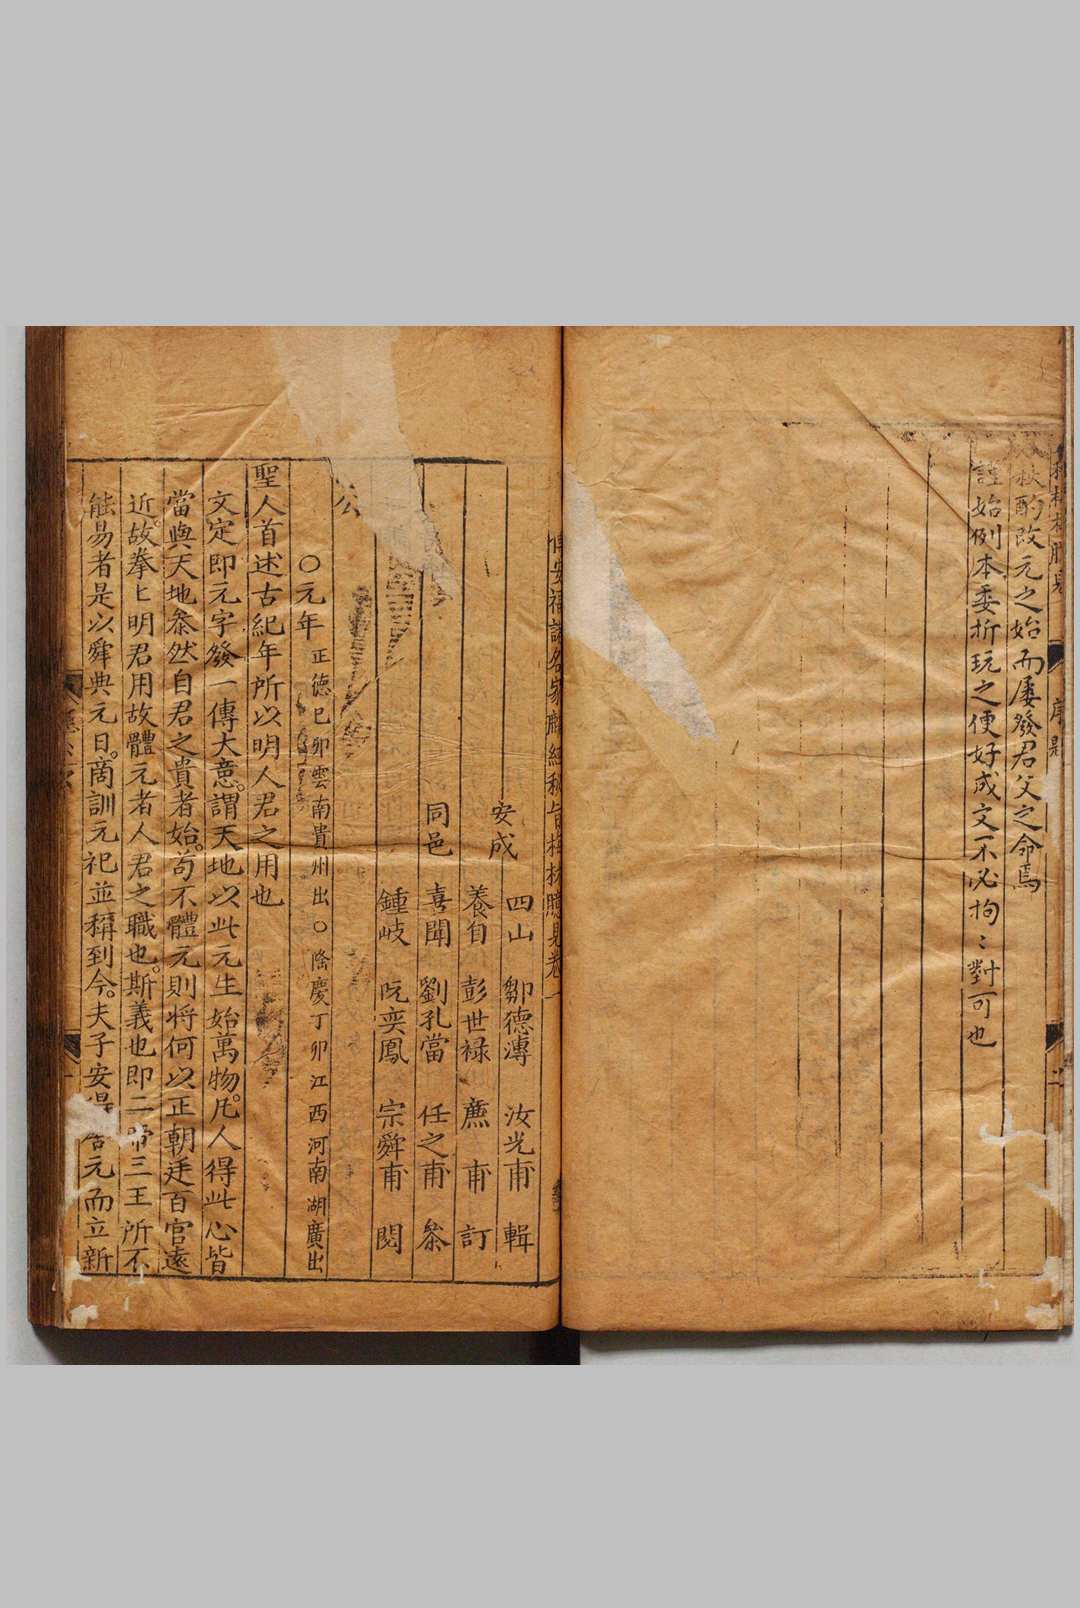 秋酌改元之始而屢發君父之命焉
註始例本委折玩之便好成文不必拘〻對可也
序題
傳安福諸名家麟經秘旨梅林臆見卷一
安成 四山 鄒德溥 汝光甫 輯
養自 彭世祿 廌甫 訂
同邑 喜聞 劉孔當 任之甫 叅
鍾岐 阮奕鳳 宗舜甫 閱
公
○元年 正德己卯雲南貴州出○隆慶丁卯江西河南湖廣出
聖人首述古紀年所以明人君之用也
文定即元字發一傳大意。謂天地以此元生始萬物。凡人得此心皆
當與天地叅然自君之貴者始。苟不體元則將何以正朝廷百官遠
近。故拳〻明君用故體元者人君之職也。斯義也即二帝三王所不
能易者是以舜典元日。商訓元祀並稱到今。夫子安得舍元而立新